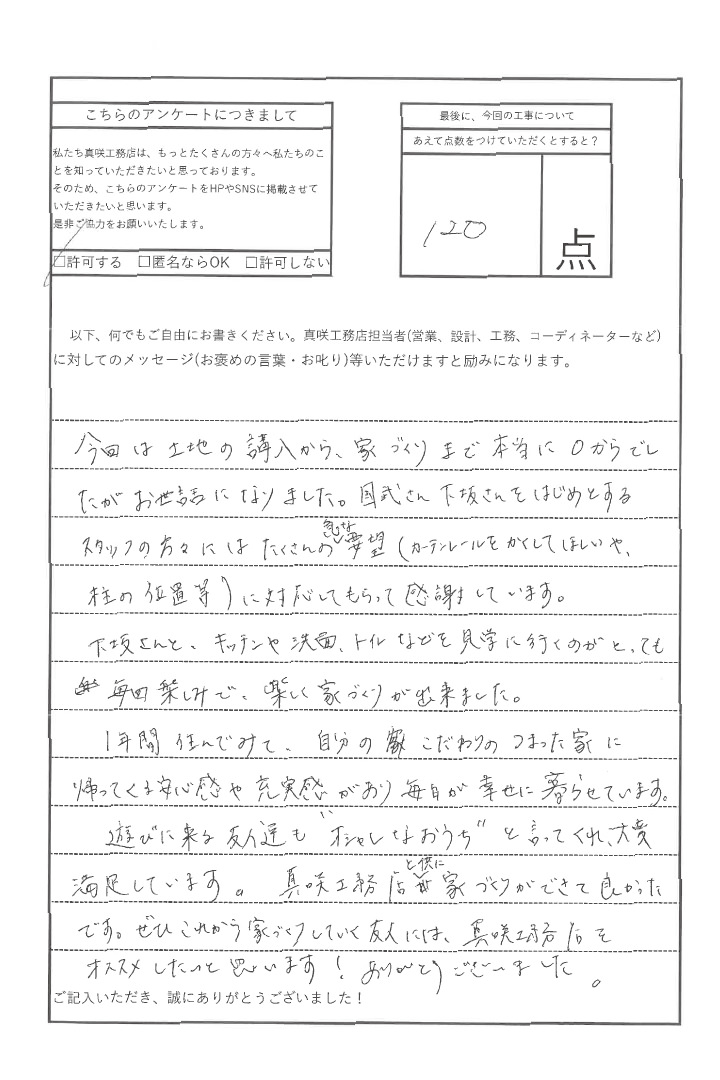 こちらのアンケートにつきまして
私たち真咲工務店は、もっとたくさんの方々へ私たちのこ
とを知っていただきたいと思っております。
そのため、こちらのアンケートをHPやSNSに掲載させて
いただきたいと思います。
是非ご協力をお願いいたします。
□許可する □匿名ならOK □許可しない
最後に、今回の工事について
あえて点数をつけていただくとすると？
120
点
以下、何でもご自由にお書きください。真咲工務店担当者(営業、設計、工務、コーディネーターなど)
に対してのメッセージ(お褒めの言葉・お叱り)等いただけますと励みになります。
今回は土地の購入から、家づくりまで本当に0からでし
たがお世話になりました。国武さん下坂さんをはじめとする
スタッフの方々にはたくさんの急な要望(カーテンレールをかくしてほしいや、
柱の位置等)に対応してもらって感謝しています。
下坂さんと、キッチンや洗面、トイレなどを見学に行くのがとっても
毎回楽しみで、楽しく家づくりが出来ました。
1年間住んでみて、自分のこだわりのつまった家に
帰ってくる安心感や充実感があり毎日が幸せに暮らせています。
遊びに来る友人達も"オシャレなおうち"と言ってくれ、大変
満足しています。真咲工務店と供に家づくりができて良かった
です。ぜひこれから家づくりしていく友人には、真咲工務店を
オススメしたいと思います！ありがとうございました。
ご記入いただき、誠にありがとうございました！